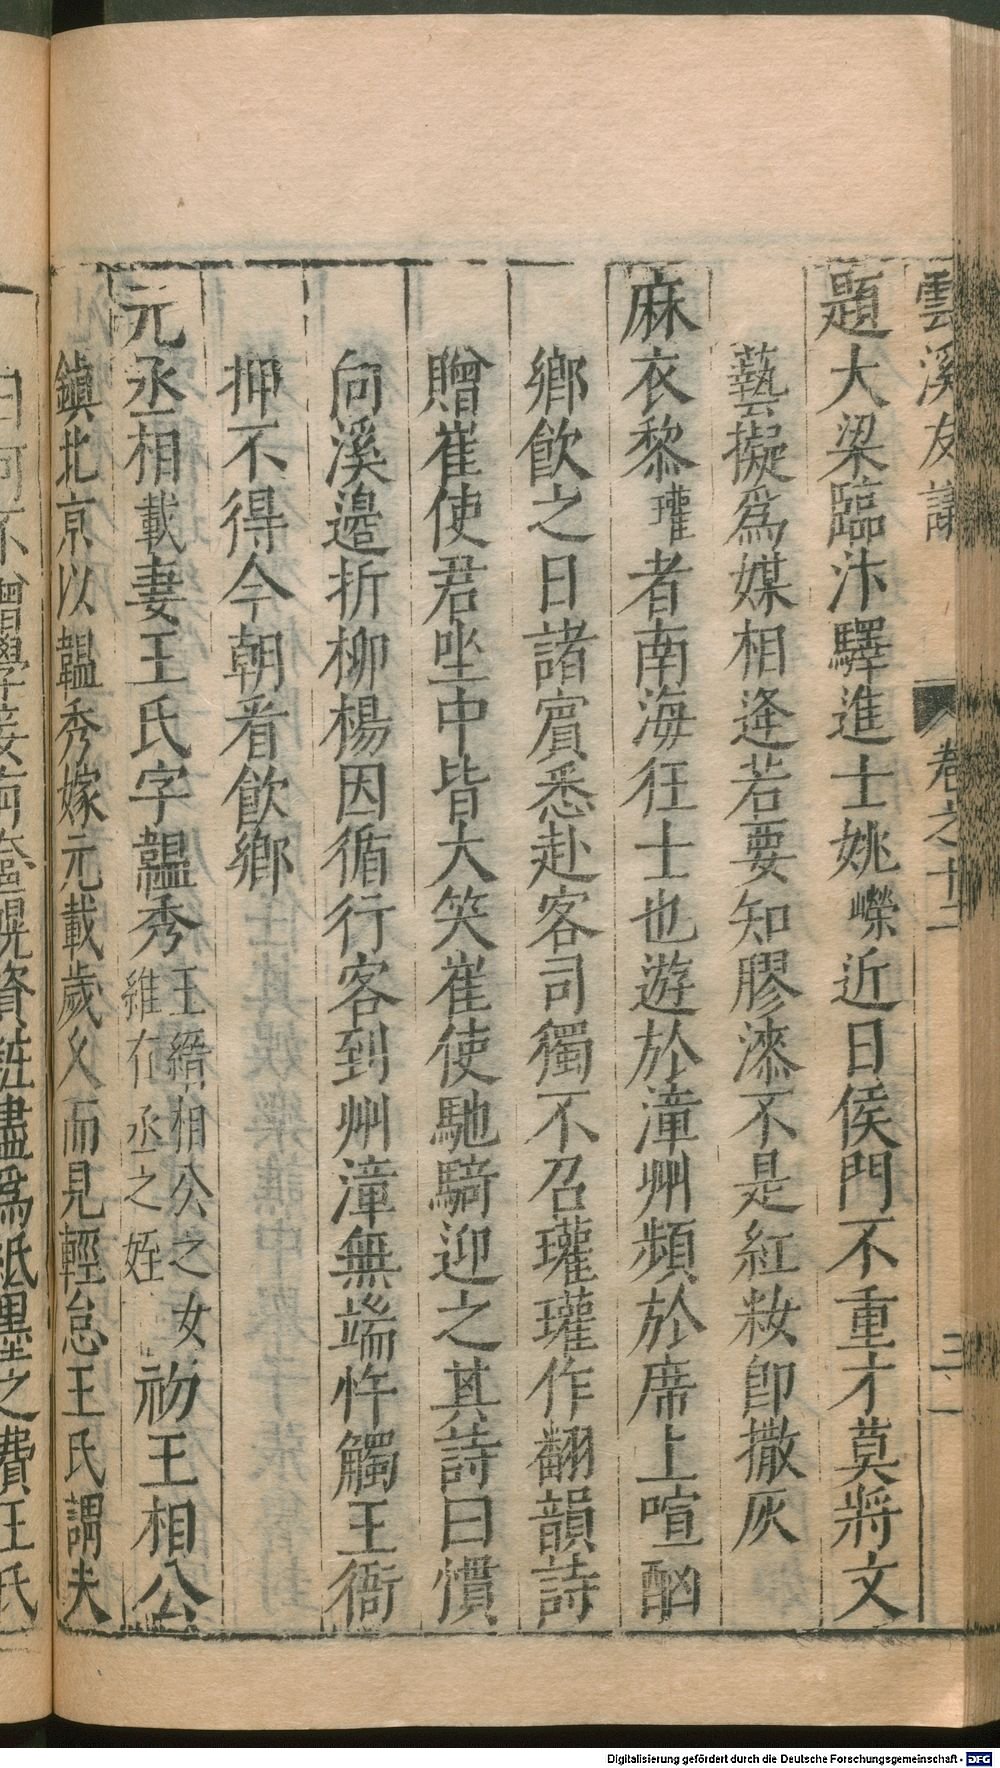 雲溪友議 卷之十二 三
題大梁臨汴驛進士姚嶸近日侯門不重才莫將文
藝擬爲媒相逄若要知膠漆不是紅妝卽撒灰
麻衣黎瓘者南海狂士也遊於漳州頻於席上喧酗
鄉飲之日諸賓悉赴客司獨不召瓘瓘作翻韻詩
贈崔使君坐中皆大笑崔使馳騎迎之其詩曰慣
向溪邊折柳楊因循行客到州漳無端忤觸王衙
押不得今朝看飲鄉
元丞相載妻王氏字韞秀王縉相公之女維右丞之姪初王相公
鎭北京以韞秀嫁元載歲久而見輕怠王氏謂夫
曰何不增學妾有奩幌資粧盡爲紙墨之費王氏
Digitalisierung gefördert durch die Deutsche Forschungsgemeinschaft - DFG